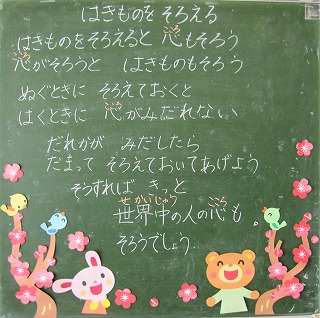 はきものを そろえる
はきものをそろえると 心もそろう
心がそろうと はきものもそろう
ぬぐときに そろえておくと
はくときに 心がみだれない
だれかが みだしたら
だまって そろえておいてあげよう
そうすれば きっと
世界中の人の心も
そろうでしょう